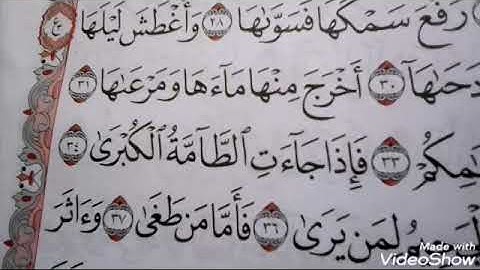 رَفَعَ سَمْكَهَا فَسَوَّىٰهَا ٢٨ وَأَغْطَشَ لَيْلَهَا
دَحَىٰهَآ ٣٠ أَخْرَجَ مِنْهَا مَآءَهَا وَمَرْعَىٰهَا ٣١
ـَٰمِكُمْ ٣٣ فَإِذَا جَآءَتِ ٱلطَّآمَّةُ ٱلْكُبْرَىٰ ٣٤
لِمَن يَرَىٰ ٣٦ فَأَمَّا مَن طَغَىٰ ٣٧ وَءَاثَرَ
Made with
VideoShow